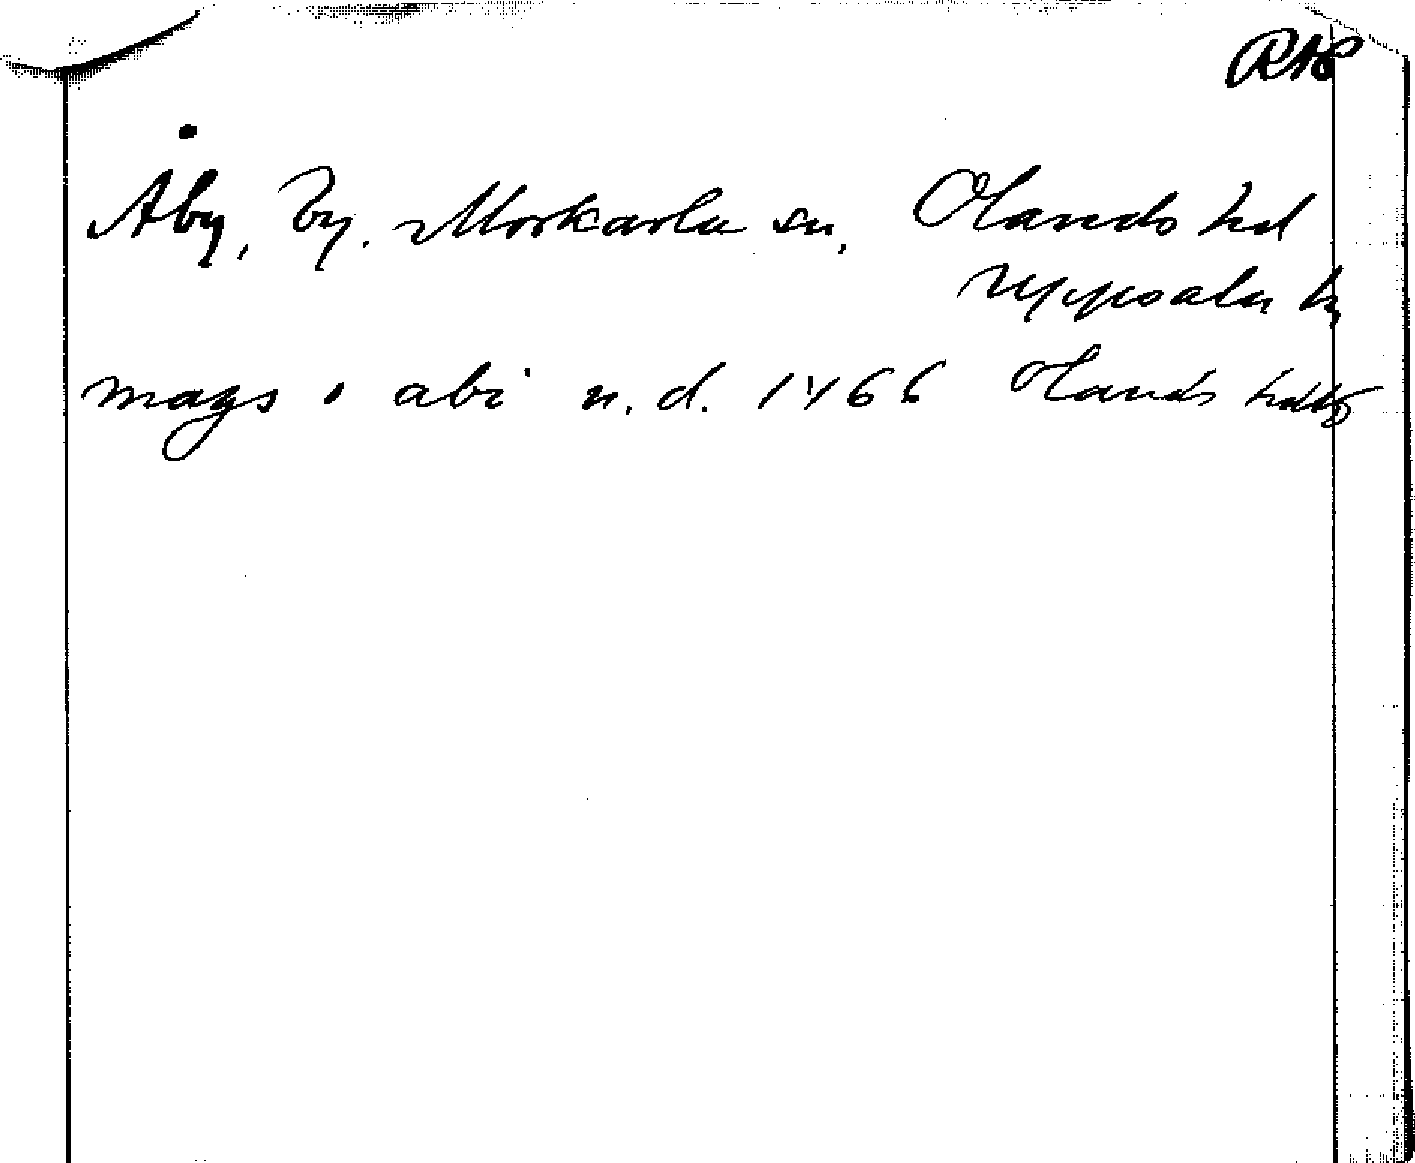 RAP
Åby, by. Morkarla sn, Olands hd
Uppsala l.
mags i abi n. d. 1466 Olands hdbs